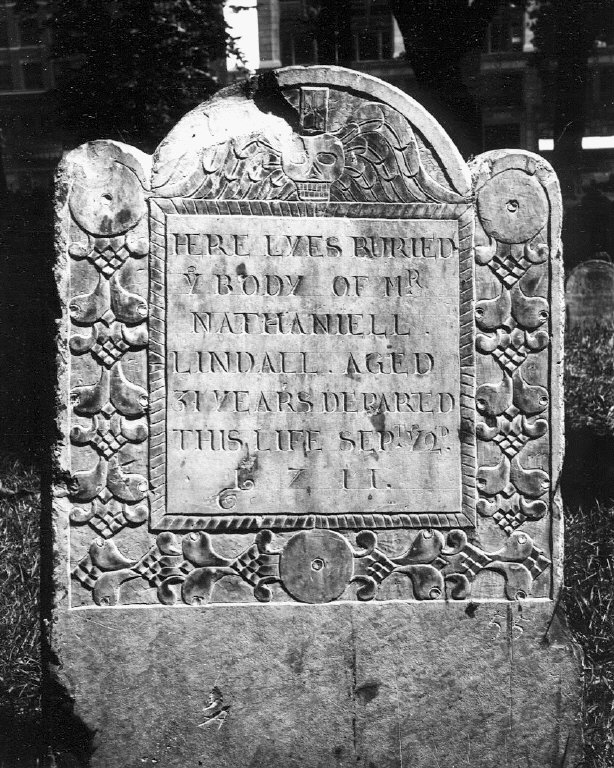 HERE LYES BURIED
Yͤ BODY OF Mᴿ
NATHANIELL .
LINDALL . AGED
31 YEARS DEPARED
THIS LIFE SEPᵗ Yᵉ 2ᴰ.
1 7 1 1 .
55